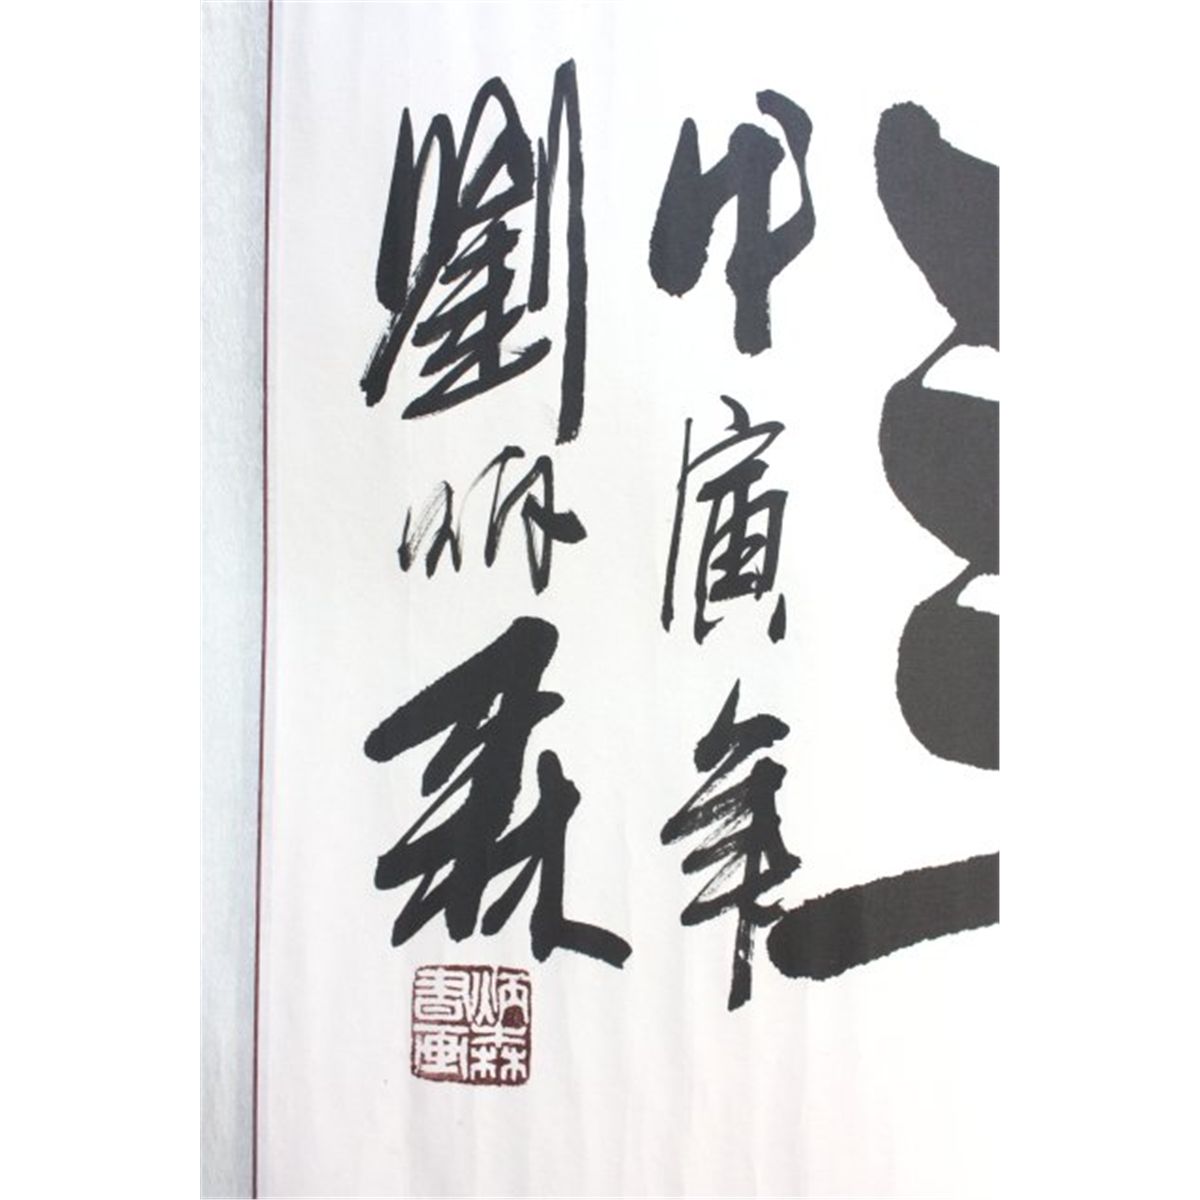 甲寅年
劉炳森
炳森
書画